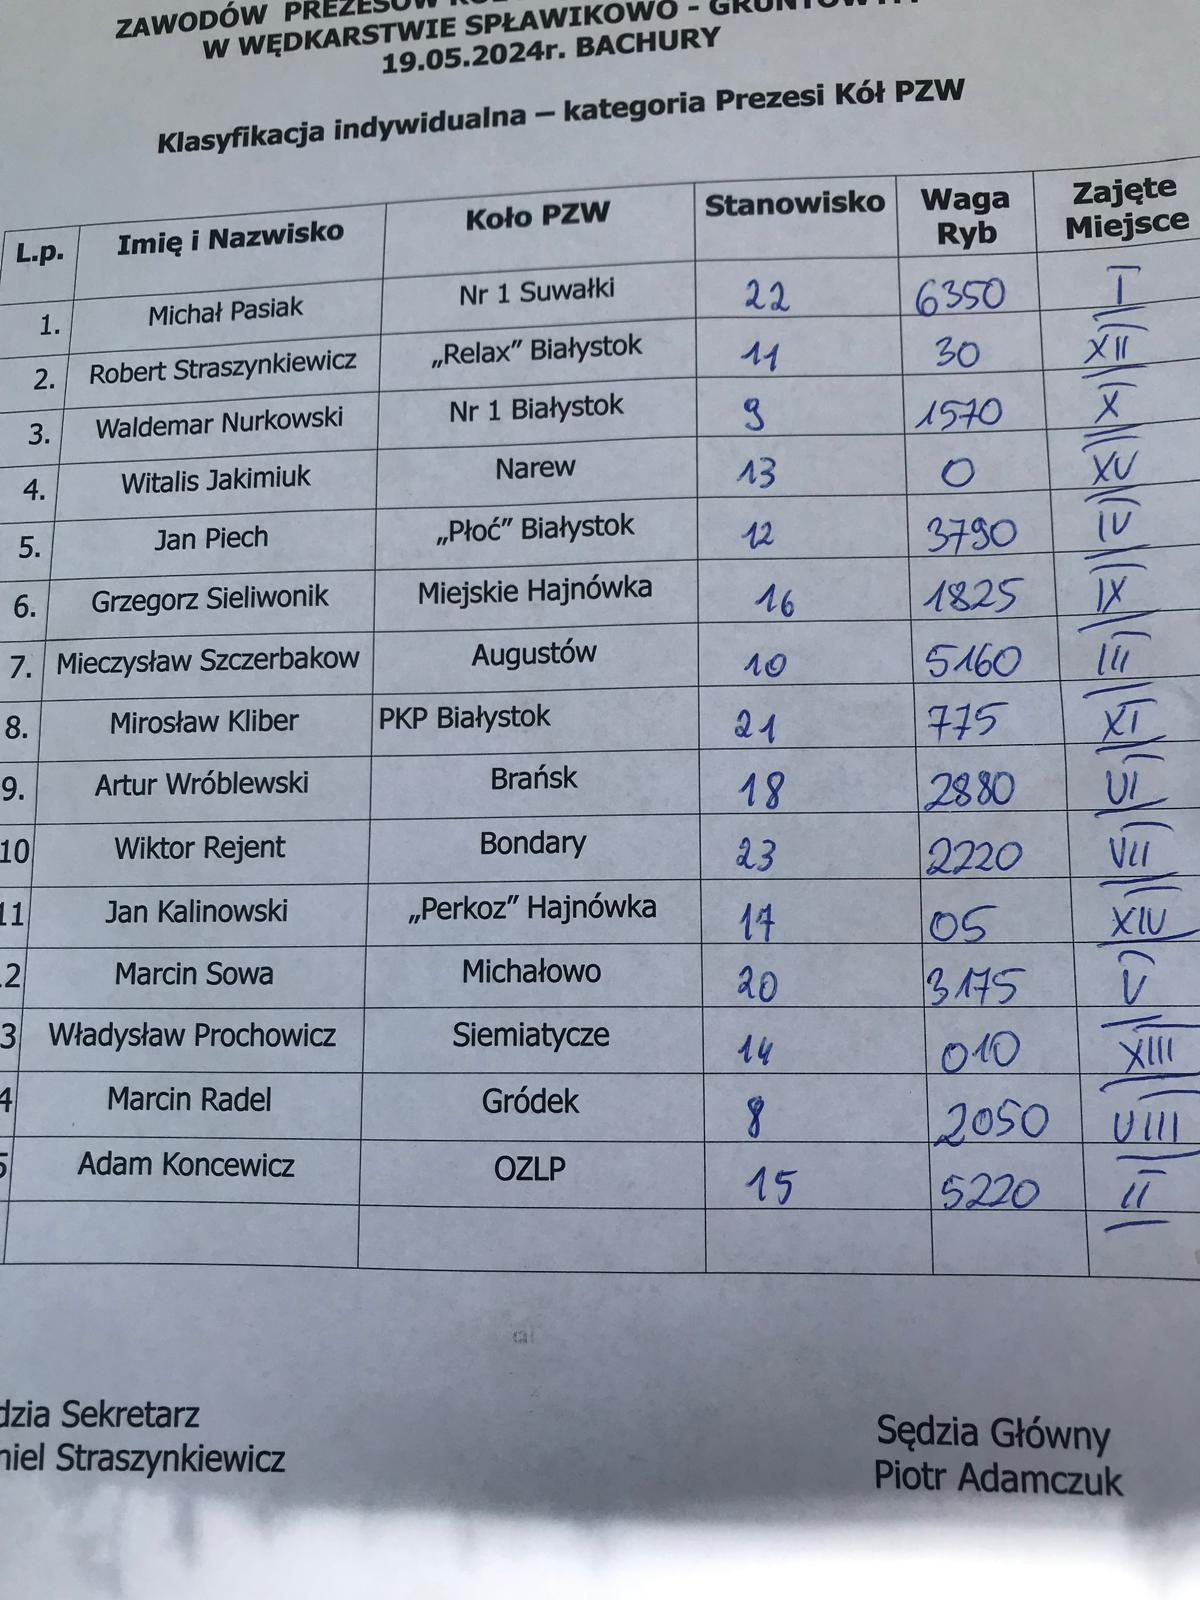 ZAWODÓW PREZESÓW
W WĘDKARSTWIE SPŁAWIKOWO - GRUNTOWYM
19.05.2024r. BACHURY
Klasyfikacja indywidualna – kategoria Prezesi Kół PZW
L.p. Imię i Nazwisko Koło PZW Stanowisko Waga Ryb Zajęte Miejsce
1. Michał Pasiak Nr 1 Suwałki 22 6350 I
2. Robert Straszynkiewicz „Relax” Białystok 11 30 XII
3. Waldemar Nurkowski Nr 1 Białystok 9 1570 X
4. Witalis Jakimiuk Narew 13 0 XV
5. Jan Piech „Płoć” Białystok 12 3790 IV
6. Grzegorz Sieliwonik Miejskie Hajnówka 16 1825 IX
7. Mieczysław Szczerbakow Augustów 10 5160 III
8. Mirosław Kliber PKP Białystok 21 775 XI
9. Artur Wróblewski Brańsk 18 2880 VI
10 Wiktor Rejent Bondary 23 2220 VII
11 Jan Kalinowski „Perkoz” Hajnówka 17 05 XIV
.2 Marcin Sowa Michałowo 20 3175 V
3 Władysław Prochowicz Siemiatycze 14 010 XIII
4 Marcin Radel Gródek 8 2050 VIII
5 Adam Koncewicz OZLP 15 5220 II
dzia Sekretarz
niel Straszynkiewicz
Sędzia Główny
Piotr Adamczuk